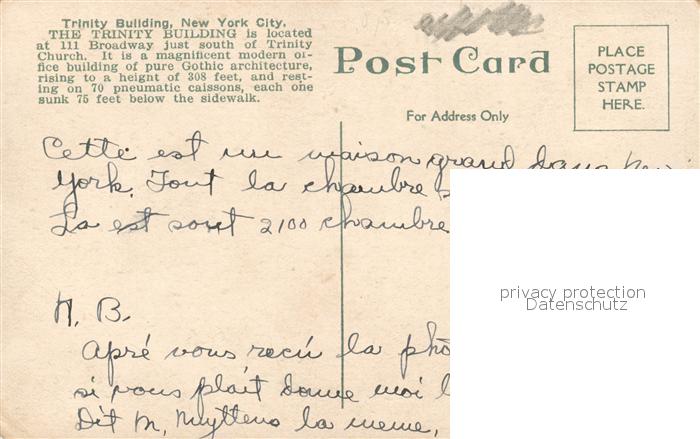 Trinity Building, New York City.
THE TRINITY BUILDING is located
at 111 Broadway just south of Trinity
Church. It is a magnificent modern of-
fice building of pure Gothic architecture,
rising to a height of 308 feet, and rest-
ing on 70 pneumatic caissons, each one
sunk 75 feet below the sidewalk.
Post Card
For Address Only
PLACE
POSTAGE
STAMP
HERE.
Cette est un maison grand dans
York. Tout la chambre
La est sont 2100 chambre
N. B.
Apré vous recú la
si vous plait donne moi
Dit M. Myttens la meme,
privacy protection
Datenschutz